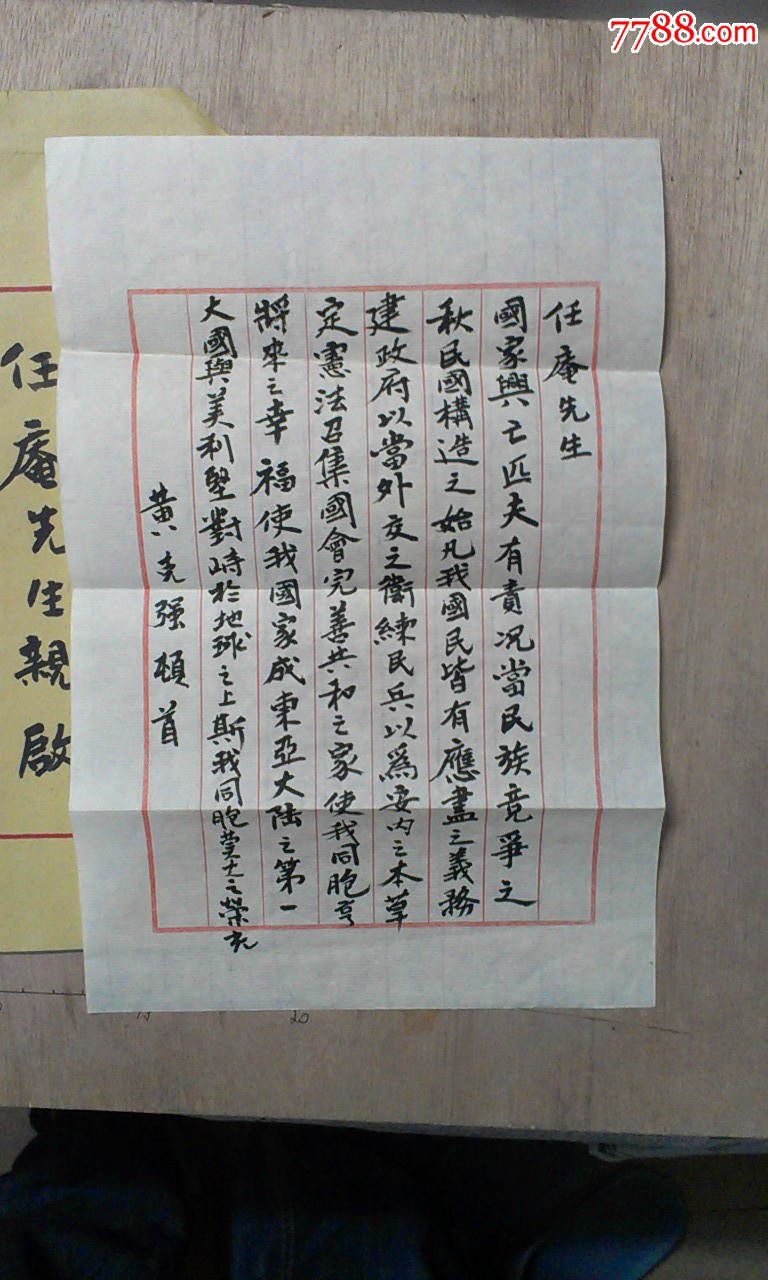 7788.com
任庵先生
國家興亡匹夫有責况當民族竞爭之
秋民國構造之始凡我國民皆有應盡之義務
建政府以當外交之衝練民兵以爲安内之本草
定憲法召集國會完善共和之家使我同胞享
將來之幸福使我國家成東亞大陆之第一
大國與美利堅對峙於地球之上斯我同胞莫大之榮
黄克强頓首
任庵先生親啟
20